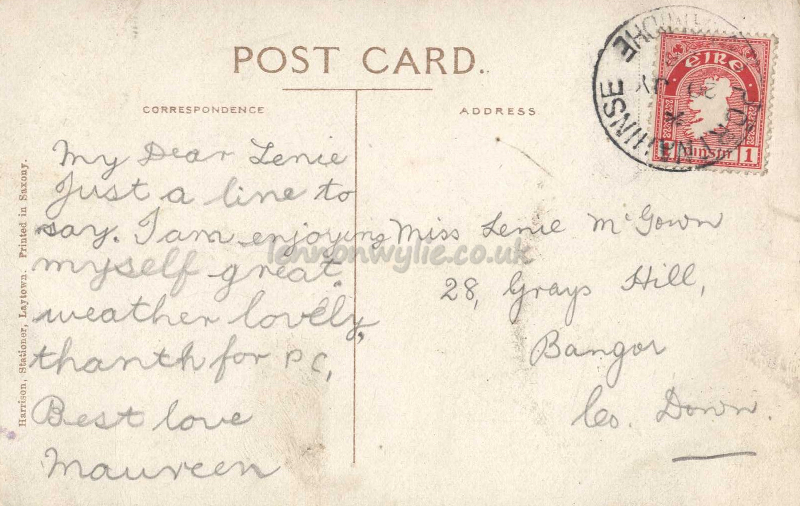 POST CARD.
CORRESPONDENCE
ADDRESS
My Dear Lenie
Just a line to
say. I am enjoying
myself great
weather lovely,
thanth for PC,
Best love
Maureen
Miss Lenie McGown
28, Grays Hill,
Bangor
Co. Down.
Harrison, Stationer, Laytown. Printed in Saxony.
ÉIRE
1
lennonwylie.co.uk